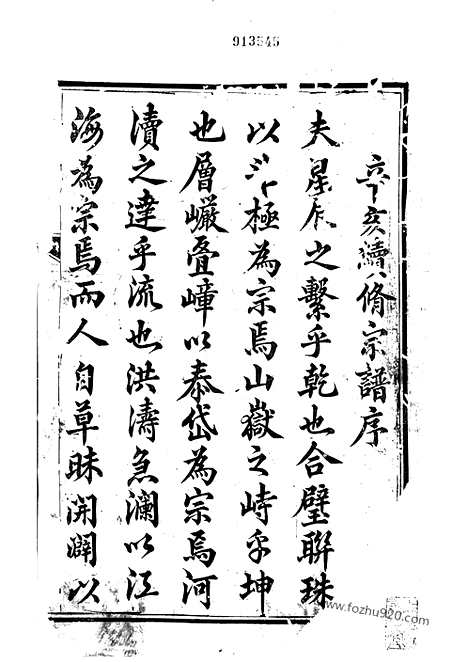 913545
辛亥續脩宗譜序
夫星辰之繫乎乾也合璧聯珠
以斗極為宗焉山嶽之峙乎坤
也層巘疊嶂以泰岱為宗焉河
瀆之達乎流也洪濤急瀾以江
海為宗焉而人自草昧開闢以
www.fozhu920.com